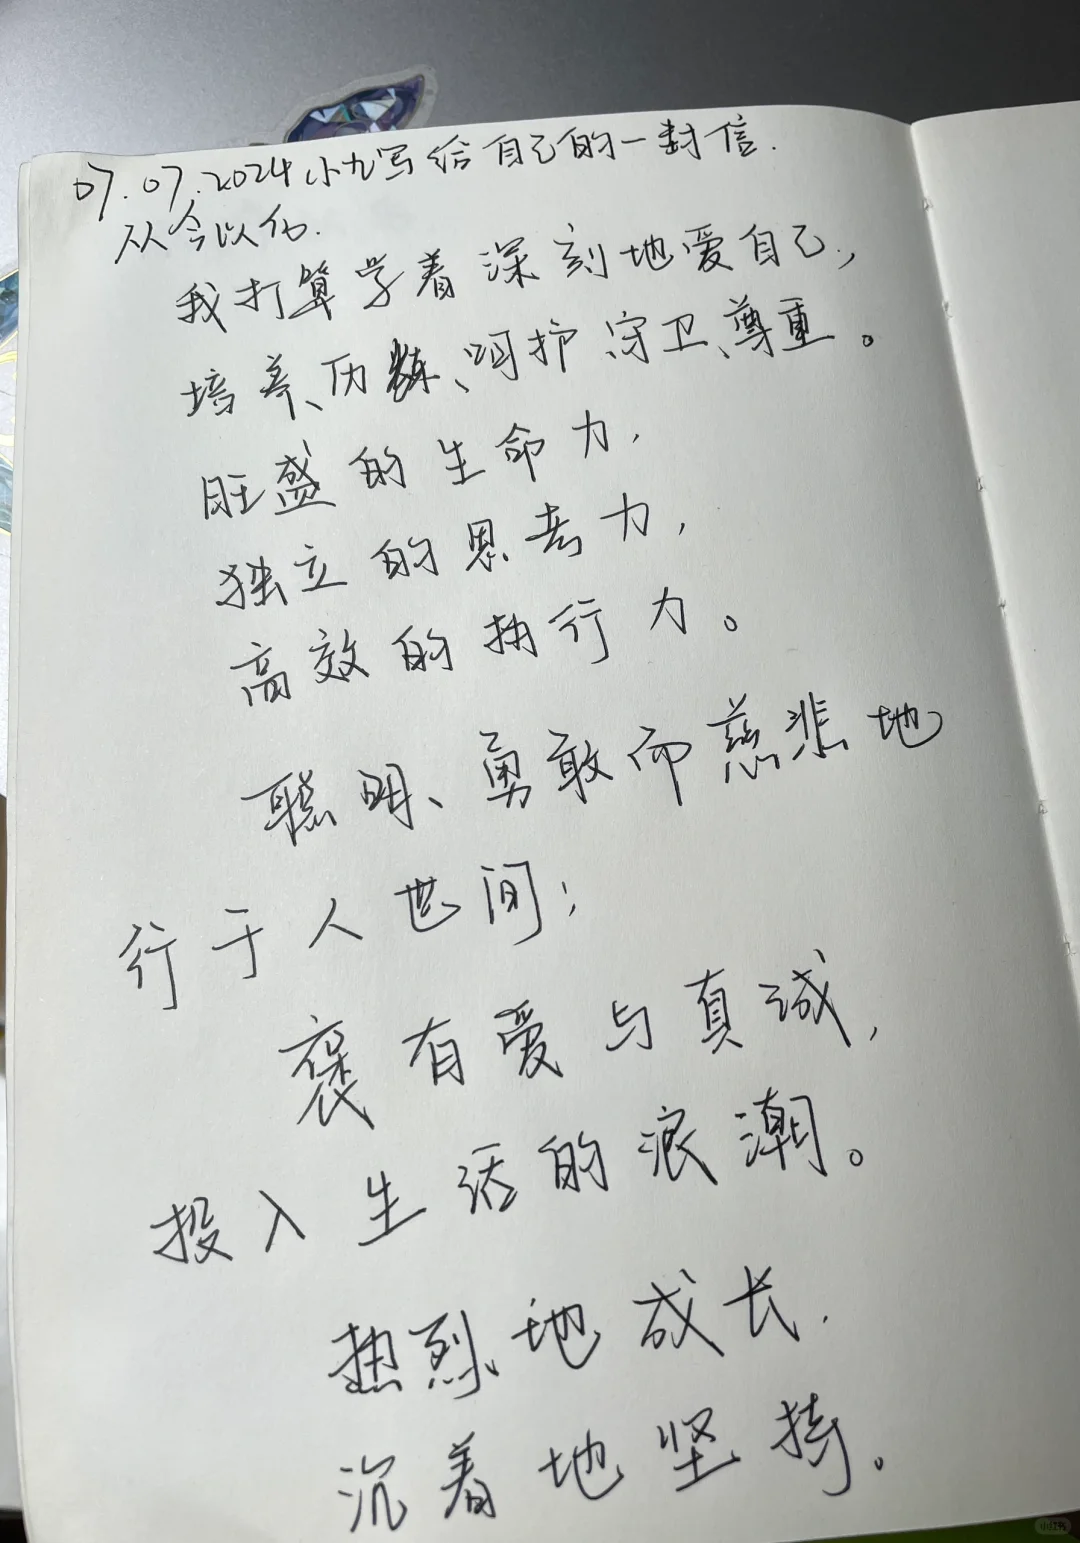 07.07.2024 小九写给自己的一封信.
从今以伤.
我打算学着深刻地爱自己,
培养、历练、呵护、守卫、尊重。
旺盛的生命力,
独立的思考力,
高效的执行力。
聪明、勇敢而慈悲地
行于人世间;
褒有爱与真诚,
投入生活的浪潮。
热烈地成长.
沉着地坚持。
小红书